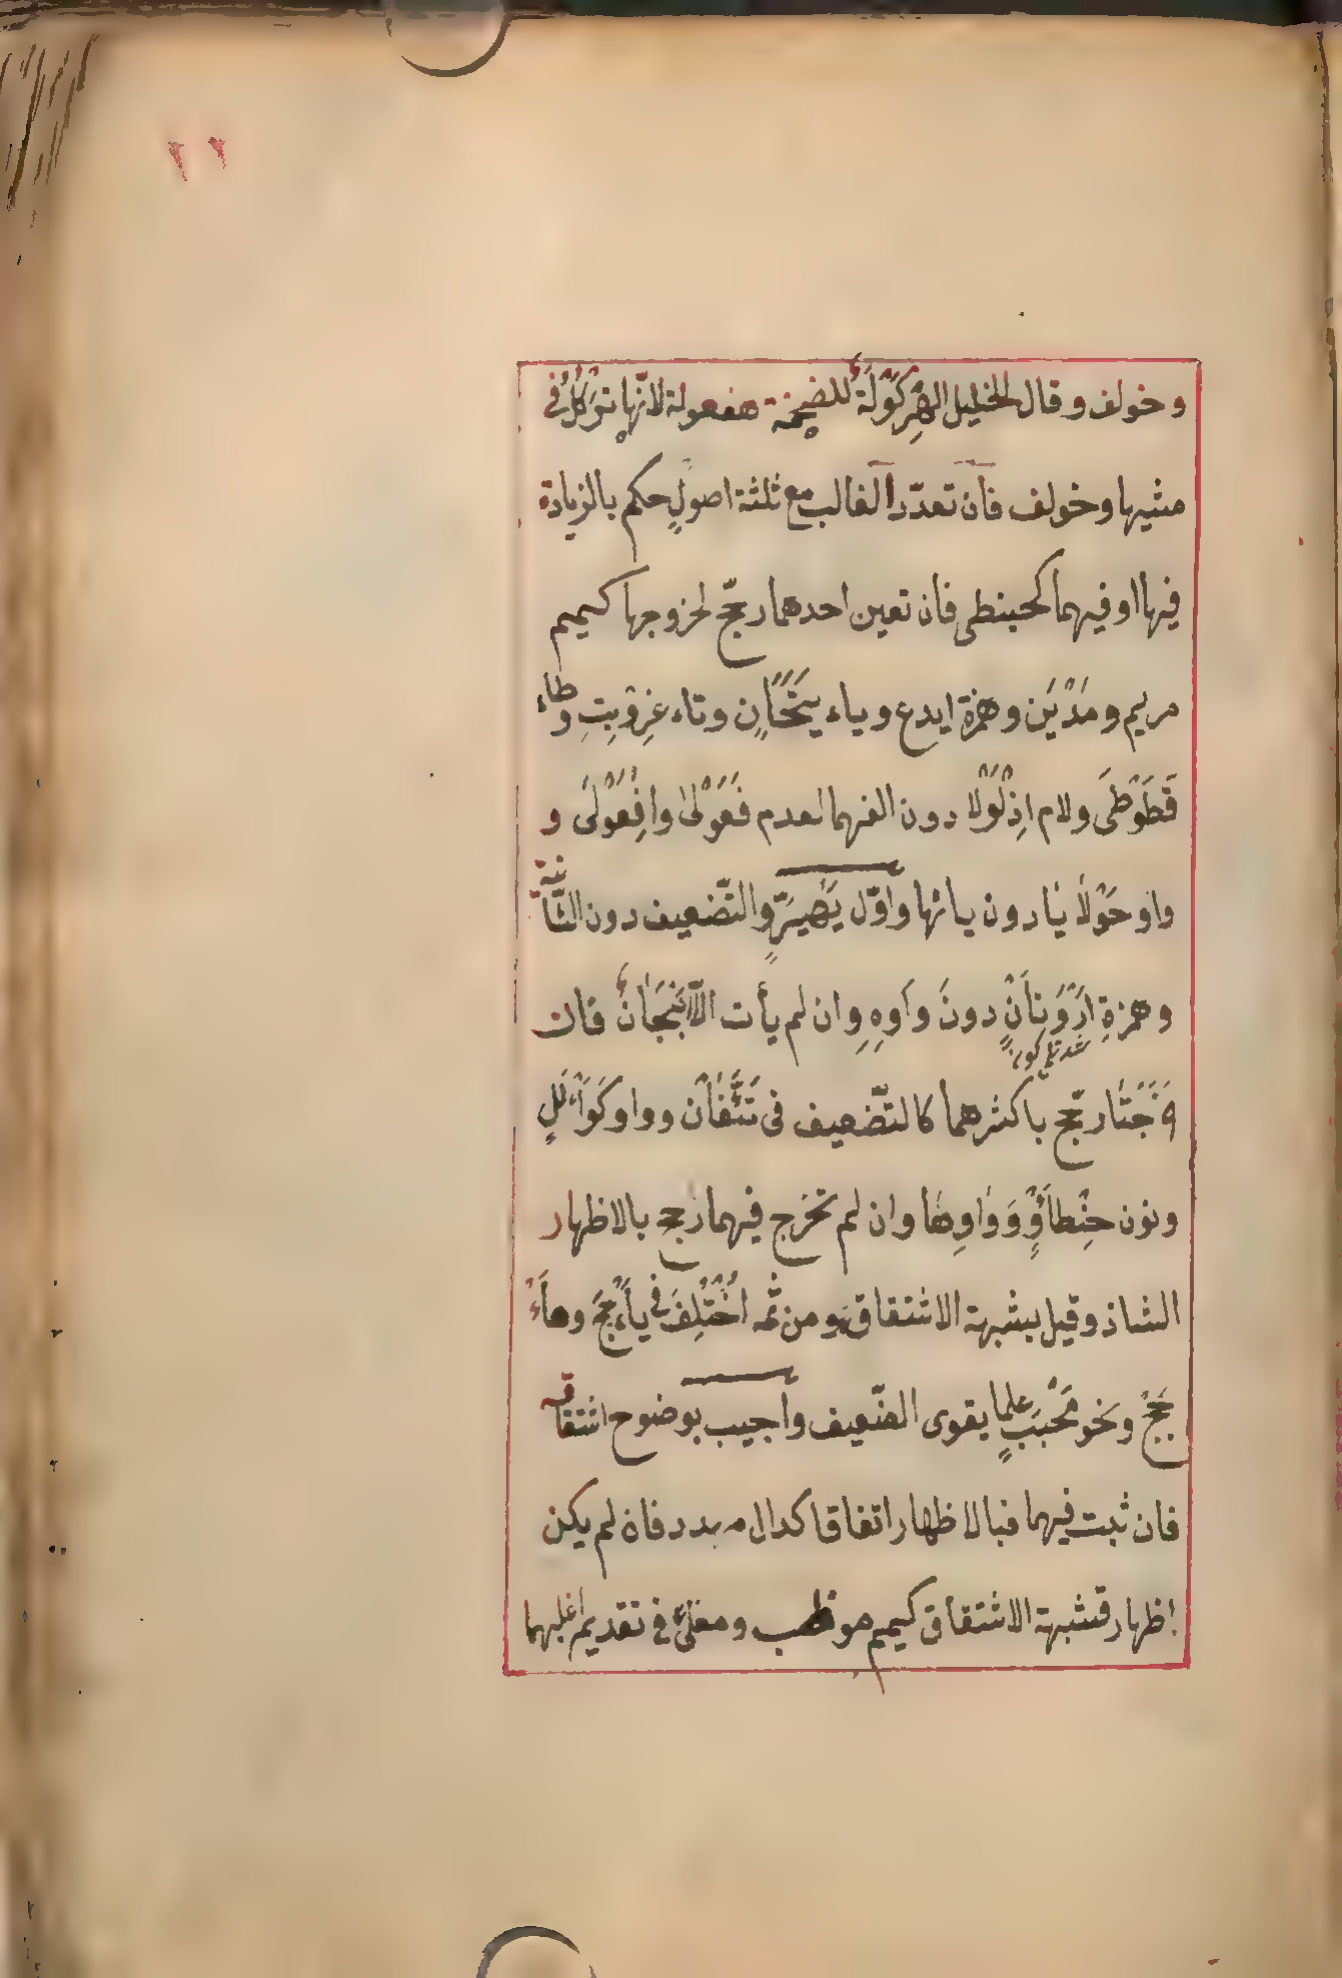 ٢٢
وخولف وقال الخليل الهِرْكَوْلَةُ للضخمة هفعولة لانّها تَرْكُلُ في
مشيها وخولف فان تعدّد الغالب مع ثلثة اصولٍ حكم بالزيادة
فيها او فيهما كحبنطى فان تعين احدهما رجّح لخروجها كميم
مريم ومَدْيَن وهمزة ايدع وياء تَيَّحَانٍ وتاء عِزْوِيتٍ وطاء
قَطَوْطَى ولام اِذْلَوْلا دون الفهما لعدم فَعَوْلى وافْعَوْلَى و
واو حَوْلَايَا دون يائها واوّل يَهْيَرٍّ والتّضعيف دون الثّانية
وهمزةِ ارْوَنَانٍ دونَ واوهِ وان لم يأت الّا انْبَجَانٌ فان
خَرَجَتَا رجّح باكثرهما كالتّضعيف فى تَئِفَّان وواو كَوَأْلَلٍ
ونون حِنْطَأْوٍ وَوَاوِها وان لم تخرج فيهما رجح بالاظهار
الشاذ وقيل بشبهة الاشتقاق ومن ثمه اُخْتُلِفَ في يأْجَجَ ومأْ
جَجَ ونحو مَحْبَبٍ علما يقوى الضّعيف واجيب بوضوح اشتقاقه
فان ثبت فيهما فبالاظهار اتفاقا كدال مهدد فان لم يكن
اظهار فشبهة الاشتقاق كميم موظب ومعلىً في تقديم اغلبهما